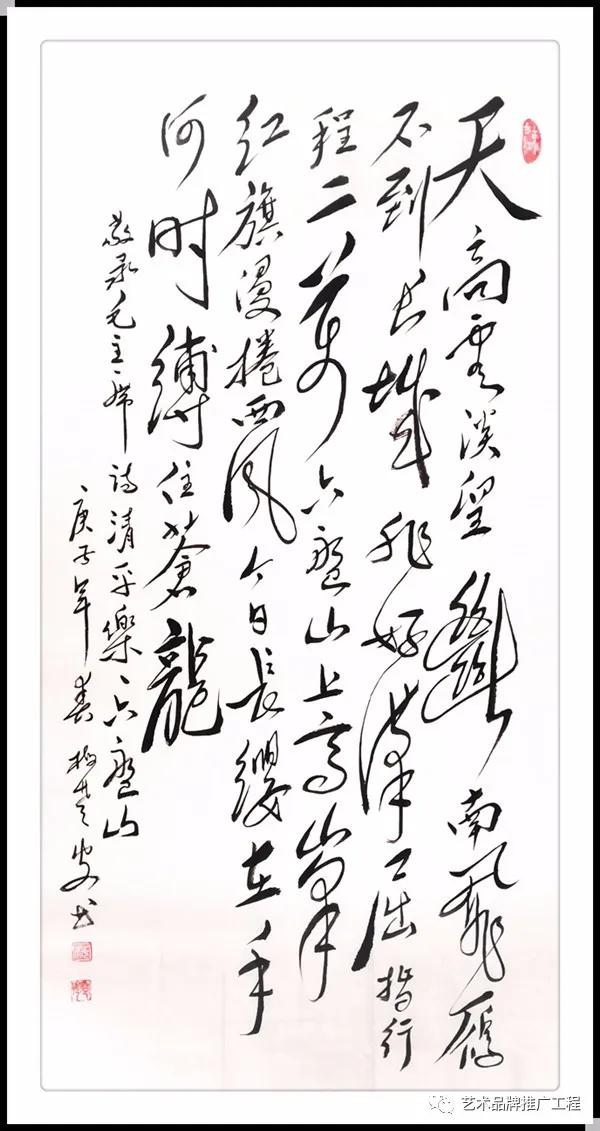 天高雲淡望斷南飛雁
不到长城非好漢屈指行
程二萬六盤山上高峰
红旗漫捲西风今日長纓在手
何时縛住蒼龍
敬录毛主席诗清平樂六盤山
庚子年春 书
艺术品牌推广工程